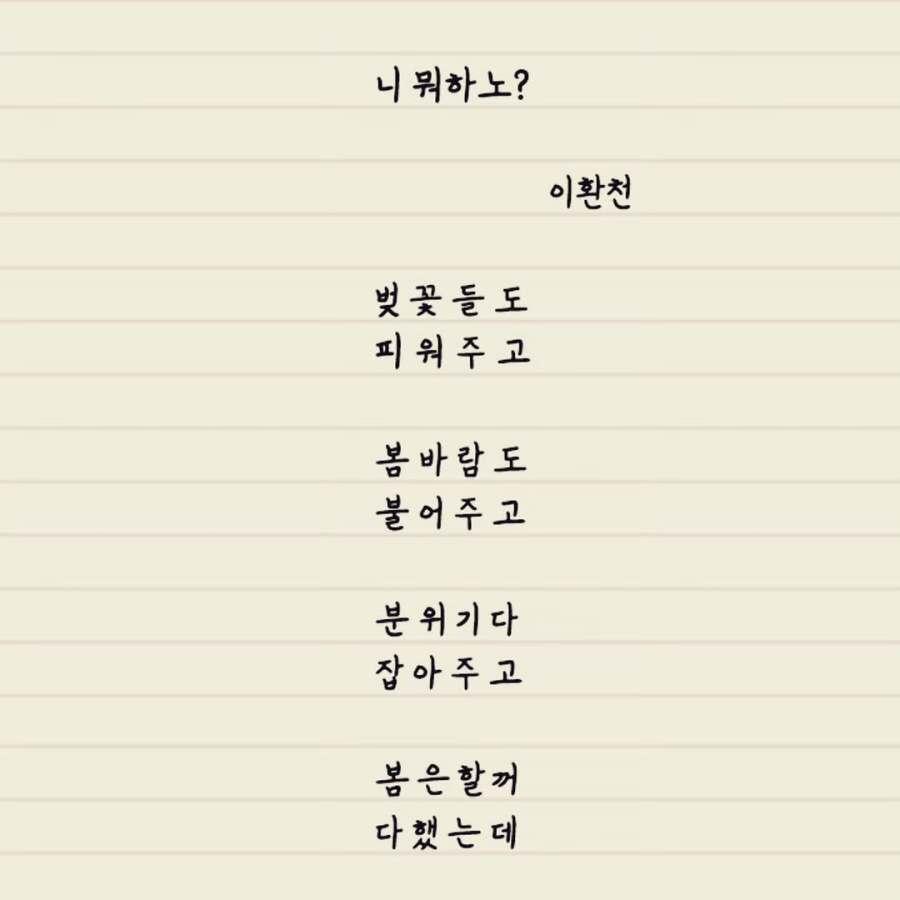 니 뭐하노?
이환천
벚꽃들도
피워주고
봄바람도
불어주고
분위기다
잡아주고
봄은할꺼
다했는데